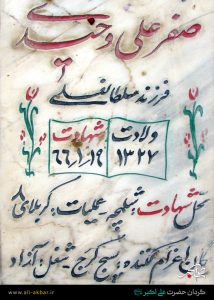 صفر علی وحیدی
فرزند سلطانعلی
ولادت
۱۳۲۷
شهادت
۶۶/۱/۱۹
محل شهادت: شلمچه - عملیات: کربلای ۸
اعزام کننده: سپیج کرج - شغل آزاد
www.ali-akbar.ir
گردان حضرت علی اکبر